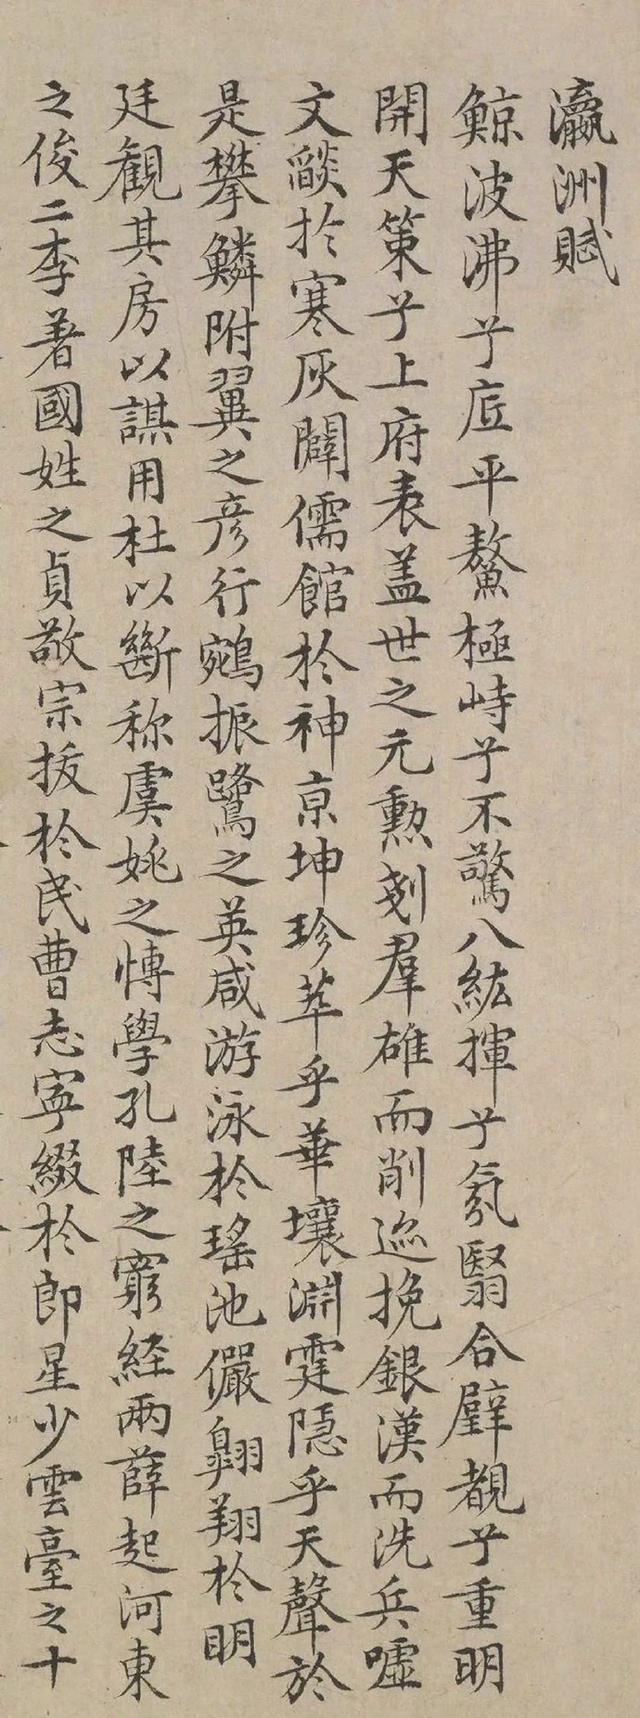 瀛洲賦
鯨波沸兮底平鰲極峙兮不驚八紘揮兮氛翳合璧覩兮重明
開天策兮上府表蓋世之元勲剗羣雄而削迹挽銀漢而洗兵噓
文燄於寒灰闢儒館於神京坤珍萃乎華壤淵霆隱乎天聲於
是攀鱗附翼之彥行鵷振鷺之英咸游泳於瑤池儼翱翔於明
廷觀其房以謀用杜以斷称虞姚之博學孔陸之窮経兩薛起河東
之俊二李著國姓之貞敬宗拔於民曹志寧綴於郎星少雲臺之十